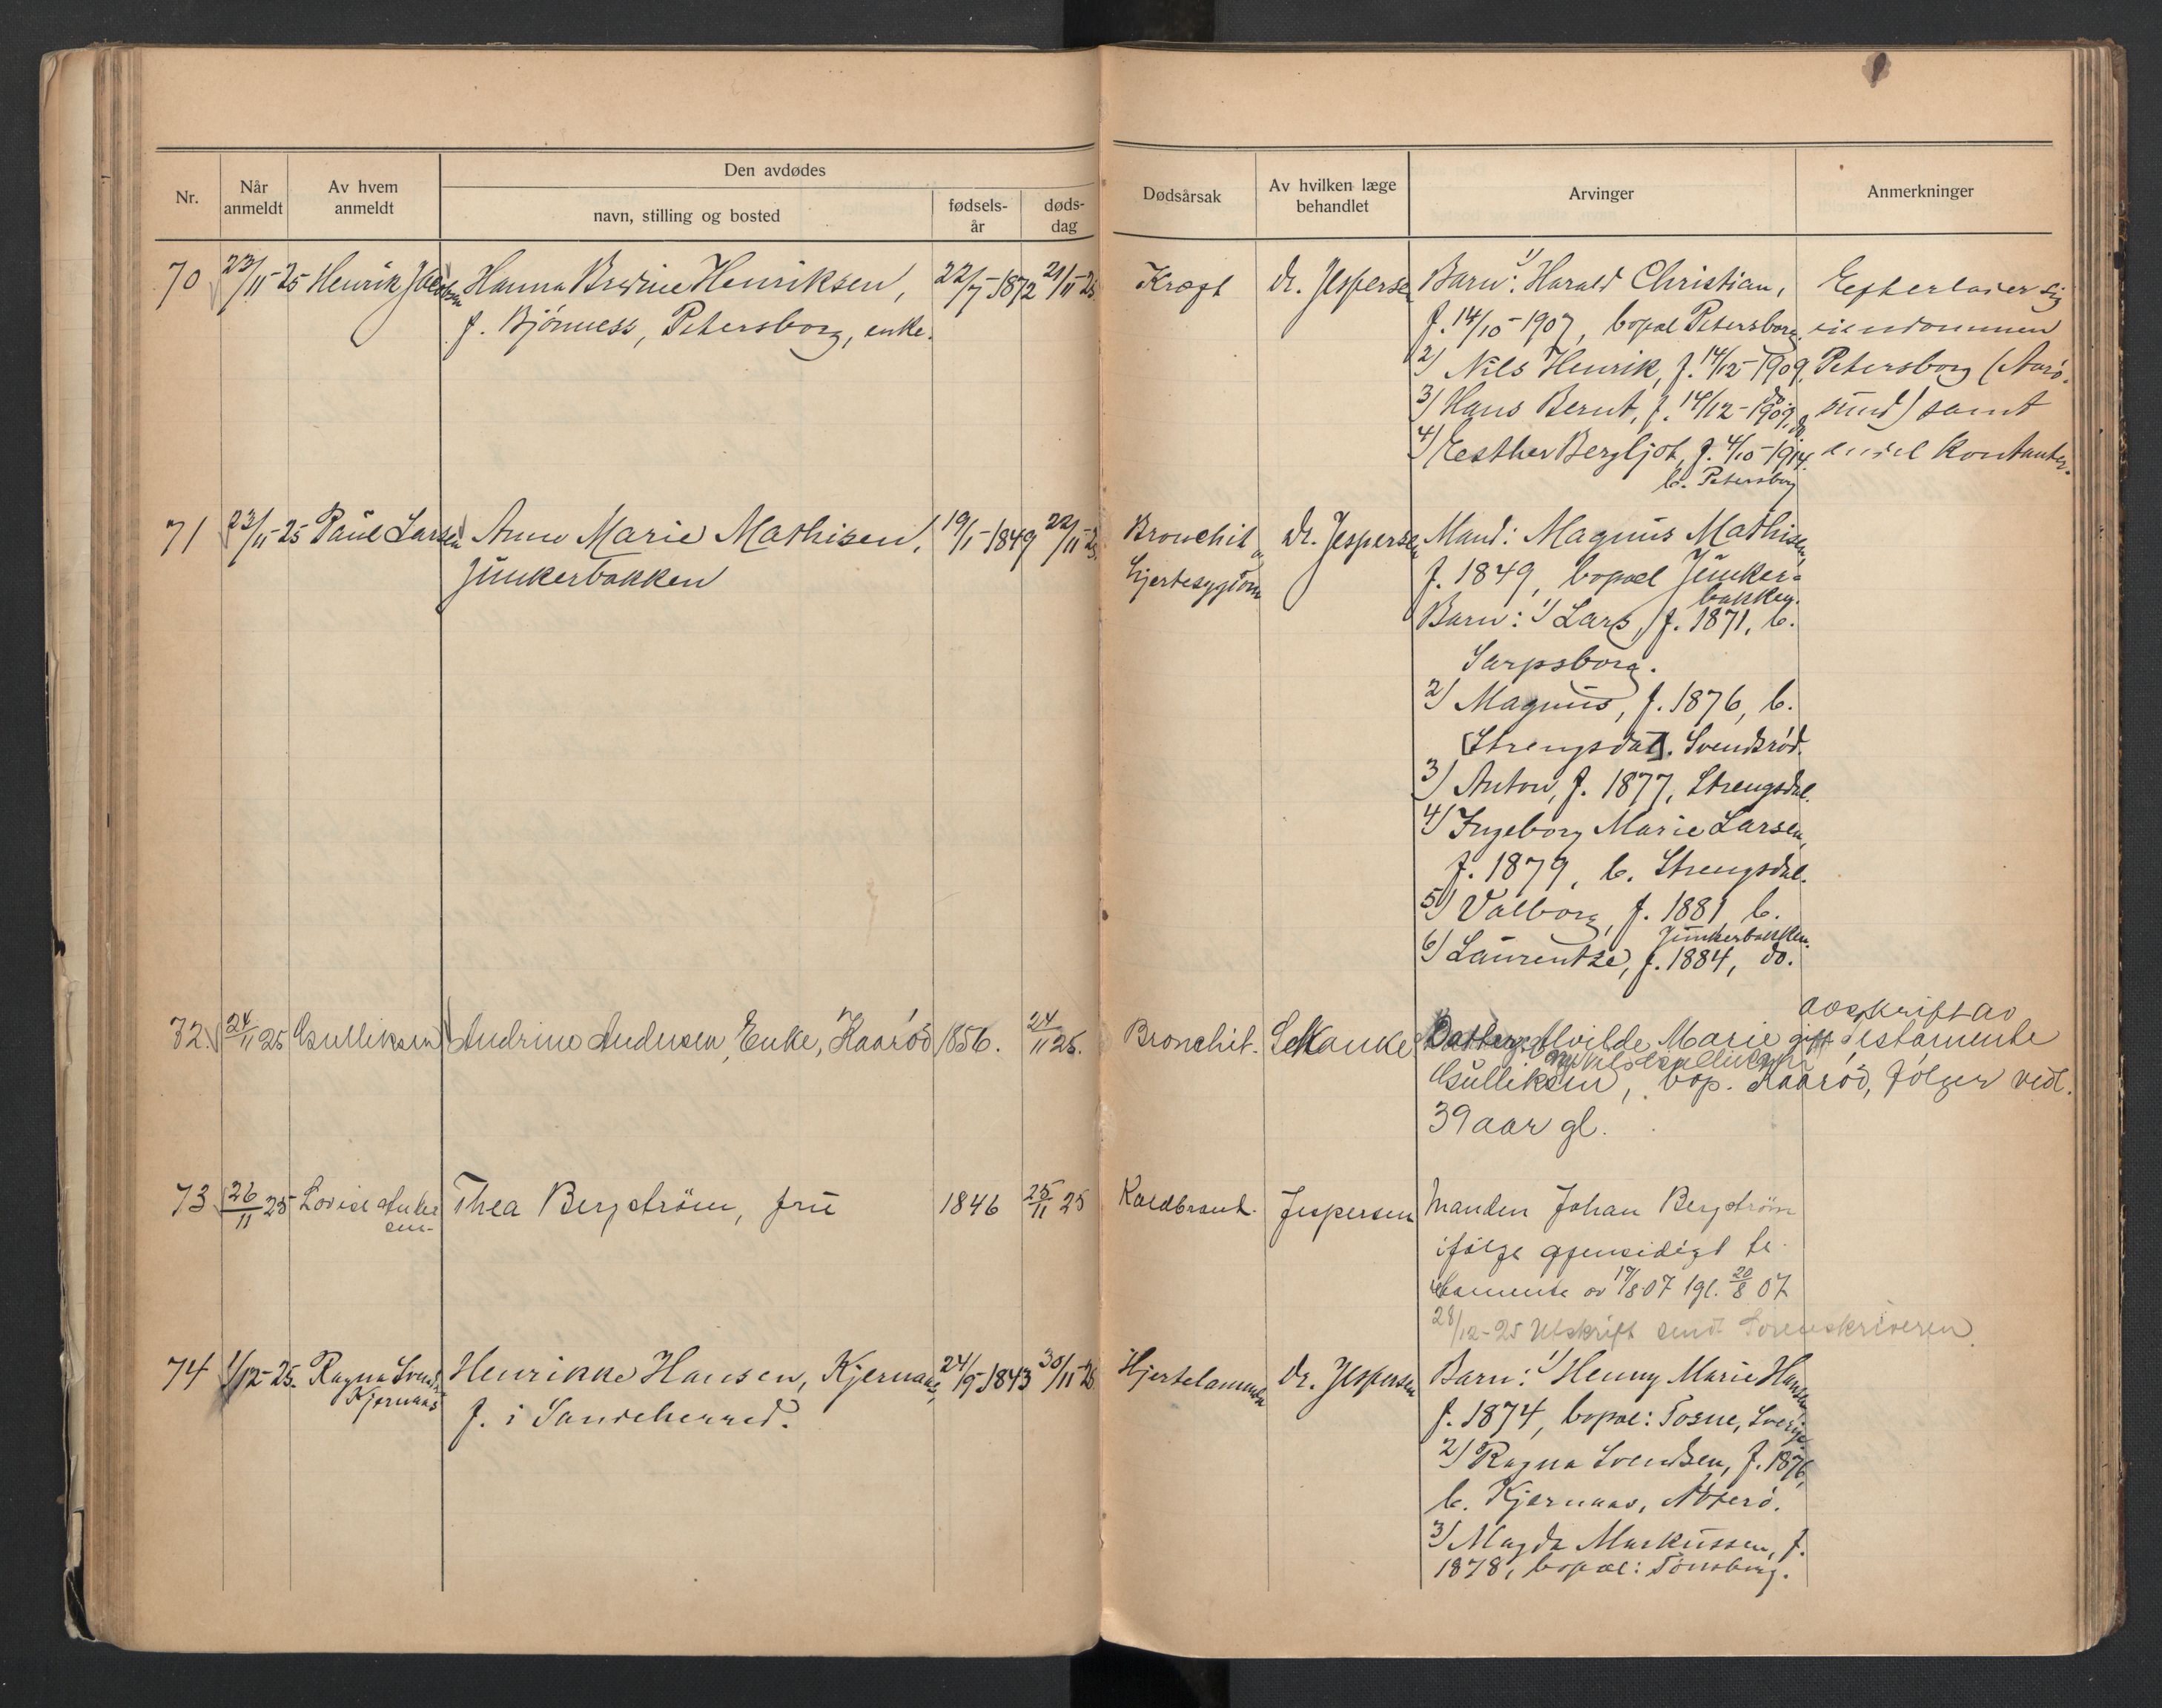 Nr.
Når anmeldt
Av hvem anmeldt
Den avdødes
navn, stilling og bosted
fødsels-år
døds-dag
Dødsårsak
Av hvilken læge behandlet
Arvinger
Anmerkninger
70 23/11-25 Henrik Jacobsen Hanna Henriksen, 22/7-1872 21/11-25
f. Bjönness, Petersborg, enke.
Kræft dr. Jespersen Barn: 1) Harald Christian, Efterlater sig
f. 14/10-1907, bopæl Petersborg. eiendommen
2) Nils Henrik, f. 14/12-1909, Petersborg (Aarö-
do.
3) Hans Bernt, f. 14/12-1909, do. sund) samt
4) Esther Bergljot, f. 4/10-1914. endel kontanter.
b. Petersborg
71 23/11-25 Paul Larsen Anne Marie Mathisen, 19/1-1849 22/11-25
Junkerbakken
Bronchit og dr. Jespersen Mand: Magnus Mathisen,
hjertesygdom f. 1849, bopæl Junker-
bakken.
Barn: 1) Lars, f. 1871, b.
Sarpsborg.
2) Magnus, f. 1876, b.
[Strengsdal]. Svendsröd.
3) Anton, f. 1877, Strengsdal.
4) Ingeborg Marie Larsen,
f. 1879, b. Strengsdal.
5) Valborg, f. 1881, b.
Junkerbakken.
6) Laurentze, f. 1884, do.
72. 24/11 25 Gulliksen Andrine Andersen, Enke, Kaaröd 1856. 24/11 25.
Bronchit. Datter Alvilde Marie gift
Gulliksen, bop. Kaaröd,
39 aar gl.
avskrift av
testamente
følger vedl.
73 26/11 25 Lovise Andersen Thea Bergström, fru 1846 25/11 25
Koldbrand. Jespersen Manden Johan Bergström
ifölge gjensidigt te-
stamente av 17/8 07 tgl. 20/8 07
28/12-25 Utskrift sendt Sorenskriveren
74 1/12-25. Ragna Svendsen Kjernaas Henrikke Hansen, Kjernaas, 24/9-1843 30/11-25
f. i Sandeherred.
Hjertelammelse dr. Jespersen Barn: 1) Henny Marie Hansen
f. 1874, bopæl: Tosne, Sverige.
2) Ragna Svendsen, f. 1876,
b. Kjernaas, Nöterö.
3) Magda Markussen, f.
1878, bopæl: Tönsberg.